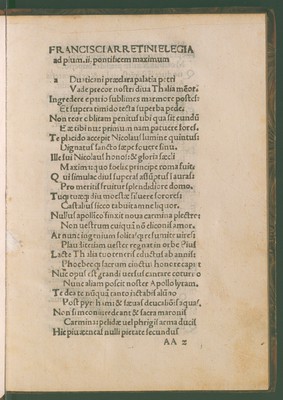 FRANCISCI ARRETINI ELEGIA
ad pium .ii. pontificem maximum
a Vaticani præclara palatia petri
Vade precor nostri diua Thalia
Ingredere e patrio sublimes marmore postes
Et supera timido tecta superba pede.
Non tear penitus ubi qua sit eundum
nunc primum nam patuere fores.
Te placido accepit Nicolaus lumine quintus
Dignatus sancto sæpe fouere sinu.
Ille sui Nicolaus honos & gloria sæcli
Maximus quo fuerat principe roma fuit
Qui simulac diuus superas auras
Pro meritis fruitur splendidiore domo.
Tuque diu mœstæ siluere sorores
Castalius sicco tabuit amne liquor.
Nullus apollineo finxit noua carmina plectro
Non uestrum cuiquam non eliconis amor.
At nunc ingenium solitasque resumite uires
Plau uester regnat in orbe Pius
Lacte Thalia tuo teneris eductus ab annis
Phœbeoque sacrum cinctus honore caput
Nunc opus est grandi uersus cantare coturno
Nunc aliam poscit noster Apollo lyram.
Te decet nunquam tanto iactabis alumno
Post pyrrham & sæuas deucalionis aquas.
Non si meonius redeant & sacra maronis
Carmina pelidæ uel phrigis arma ducis
Hic pius æneas nulli pietate secundus
AA 2